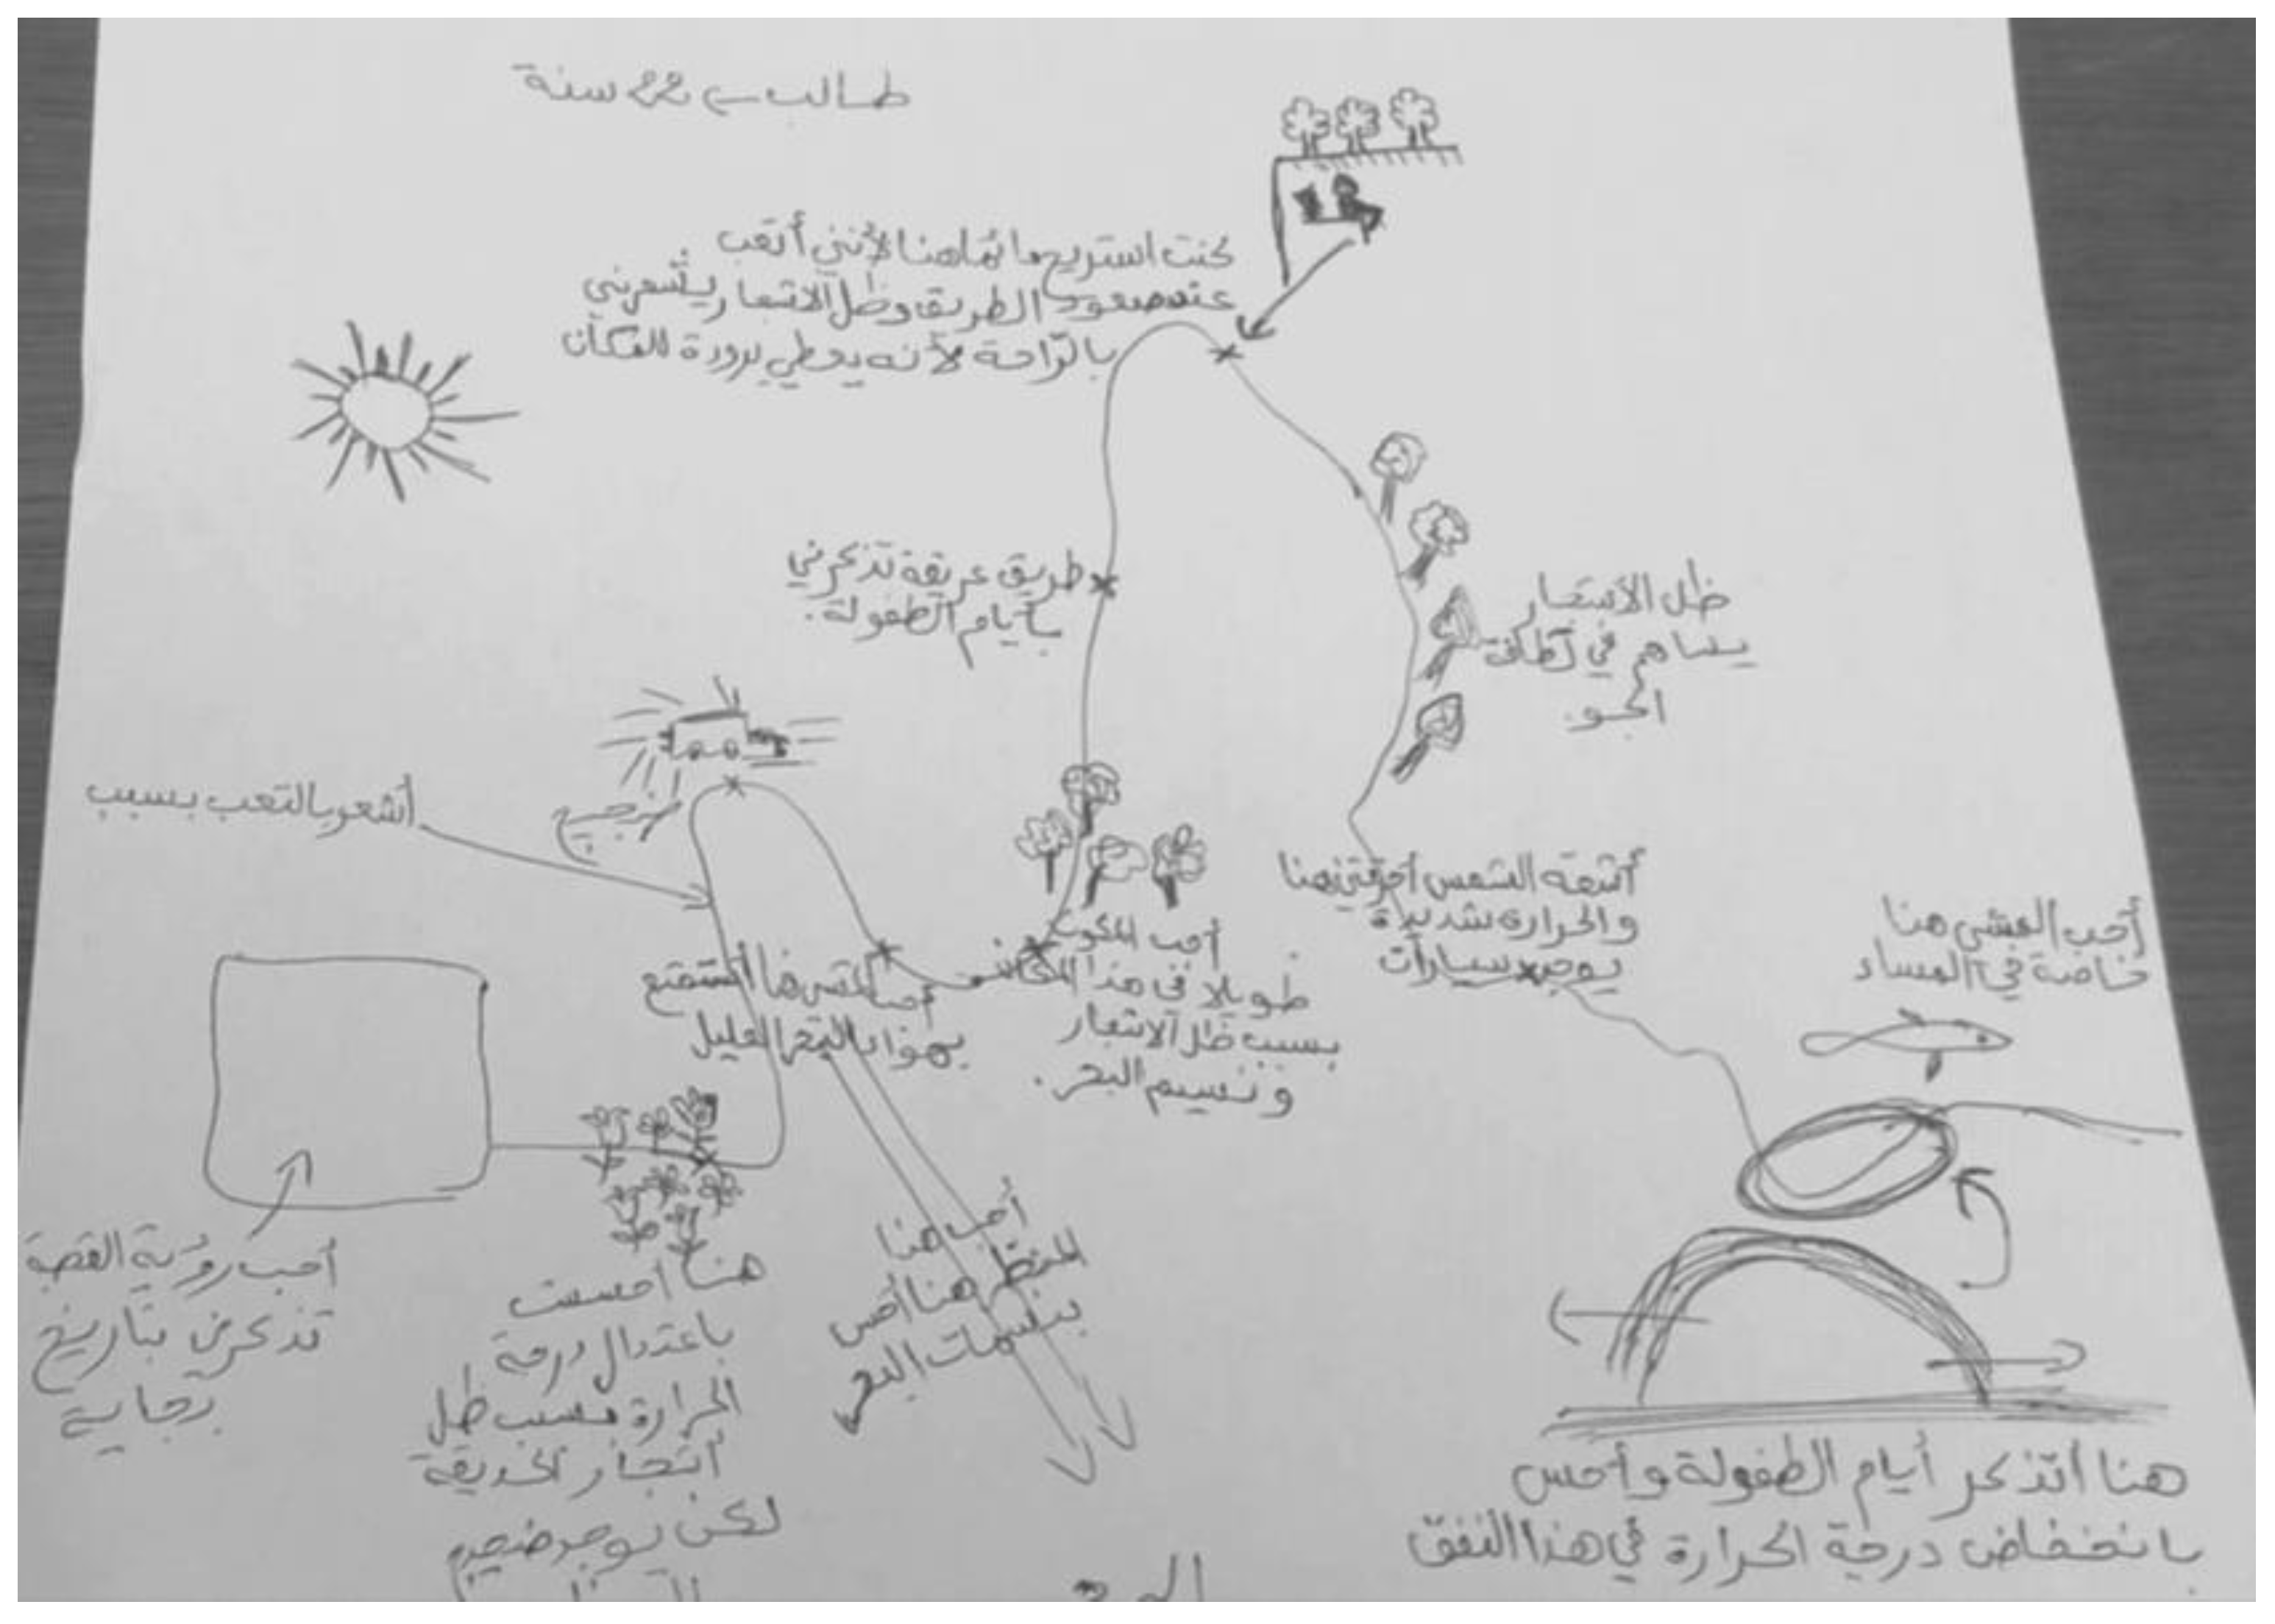 طالب 22 سنة
كنت استريح دائما هنا لأنني أتعب
عند صعود الطريق وظل الاشجار يشعرني
بالرّاحة لأنه يعطي برودة للمكان
طريق عريقة تذكرني
بأيام الطفولة.
ظل الأشجار
يساهم في لطافة
الجو.
ضجيج
أشعر بالتعب بسبب
أشعة الشمس احرقتني هنا
والحرارة شديدة
يوجد سيارات
أحب المشي هنا
خاصة في المساء
أحب المكوث
طويلا في هذا المكان
بسبب ظل الاشجار
ونسيم البحر.
أحب هنا أستمتع
بهواء البحر العليل
أحب هنا
المنظر هنا أحس
بنسمات البحر
أحب رؤية القصبة
تذكرني بتاريخ
بجاية
هنا احسست
باعتدال درجة
الحرارة بسبب ظل
أشجار الحديقة
لكن يوجد ضجيج
هنا أتذكر أيام الطفولة وأحس
بانخفاض درجة الحرارة في هذا النفق